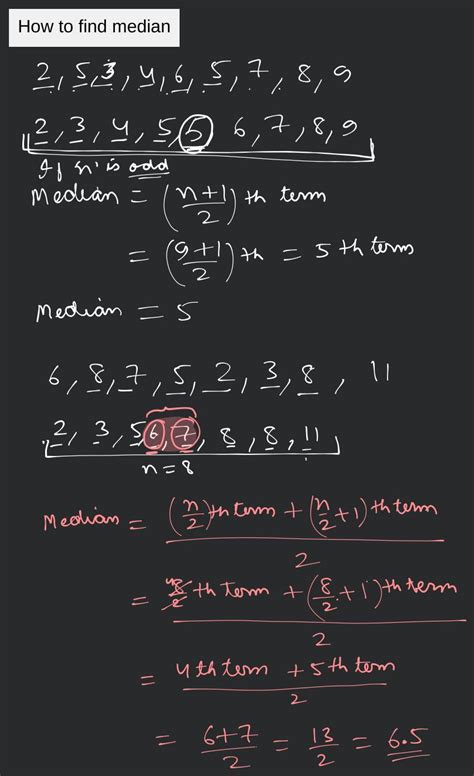 How to find median
2, 5, 3, 4, 6, 5, 7, 8, 9
2, 3, 4, 5, 5 6, 7, 8, 9
If 'n' is odd
Median = (n+1/2) th term
= (9+1/2) th = 5 th term
Median = 5
6, 8, 7, 5, 2, 3, 8, 11
2, 3, 5, 6, 7, 8, 8, 11
n = 8
Median = (n/2)th term + (n/2 + 1) th term / 2
= 4 8/2 th term + (8/2 + 1) th term / 2
= 4 th term + 5 th term / 2
= 6+7/2 = 13/2 = 6.5